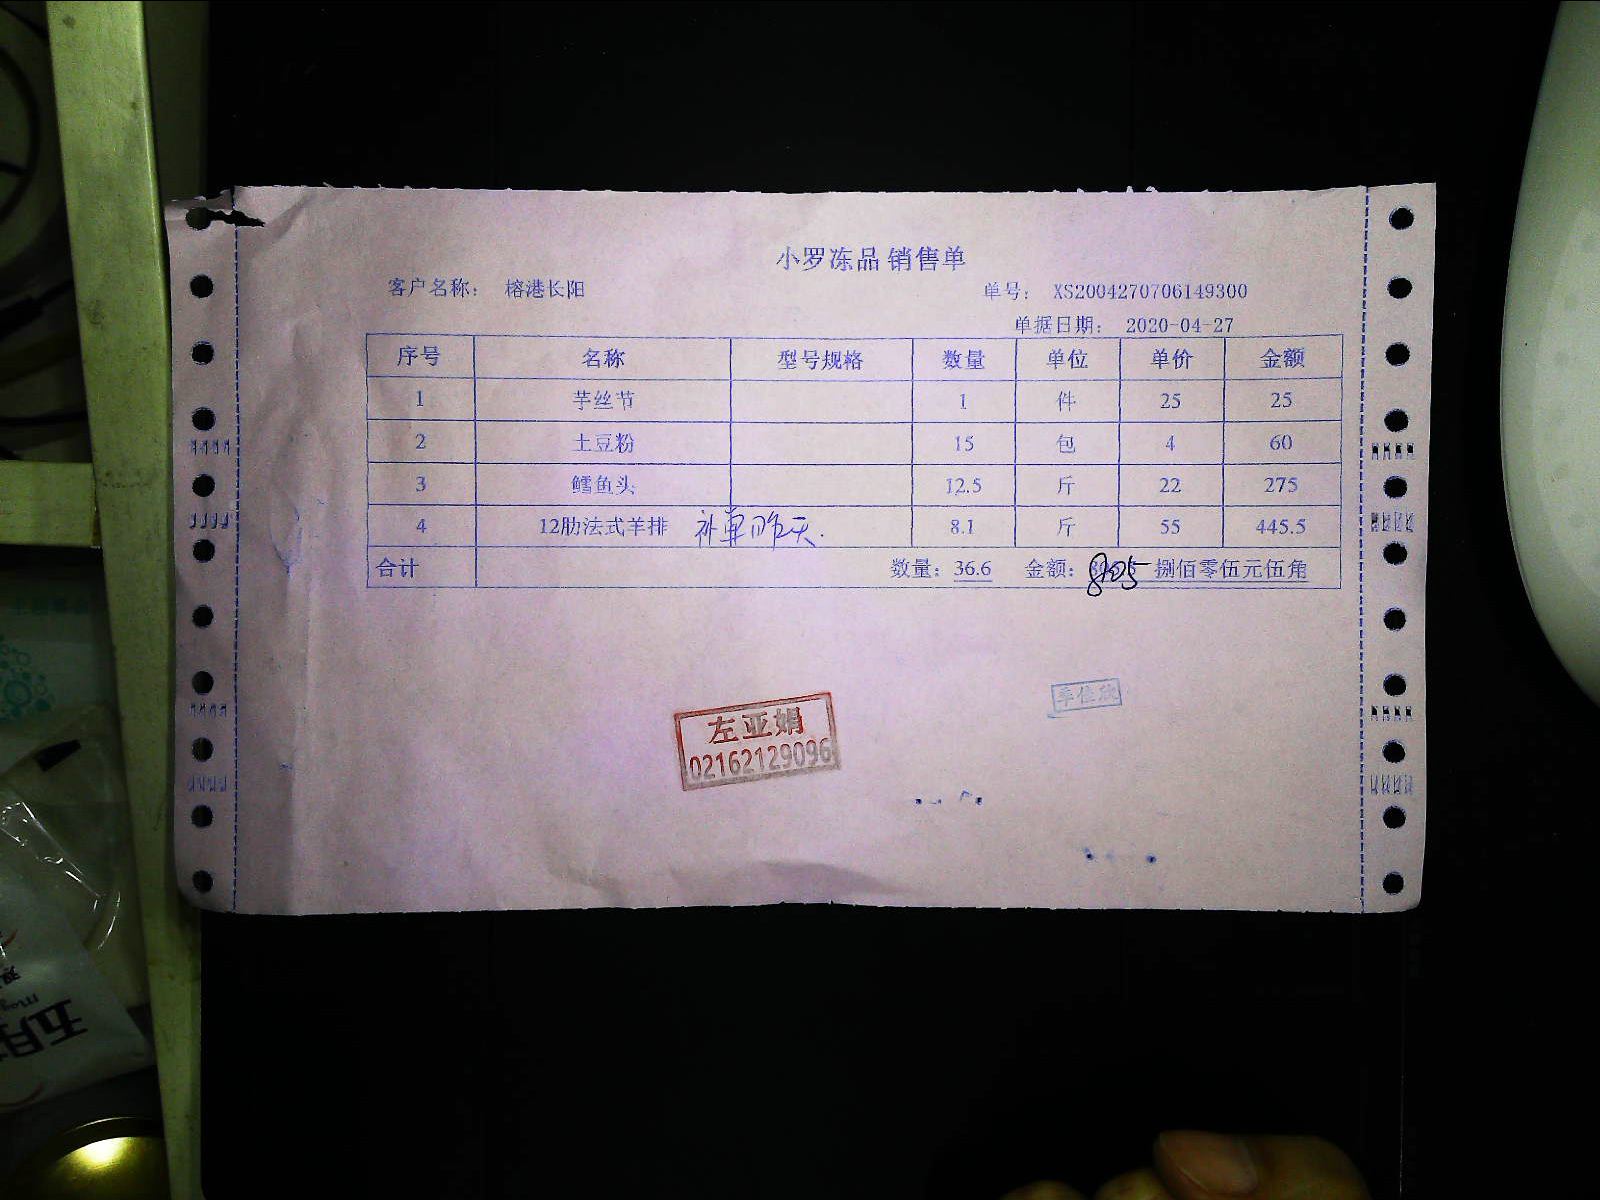 小罗冻品 销售单
客户名称： 榕港长阳 单号： XS2004270706149300
单据日期： 2020-04-27
序号 名称 型号规格 数量 单位 单价 金额
1 芋丝节 1 件 25 25
2 土豆粉 15 包 4 60
3 鳕鱼头 12.5 斤 22 275
4 12肋法式羊排 补单昨天. 8.1 斤 55 445.5
合计 数量：36.6 金额：805 捌佰零伍元伍角
左亚娟
02162129096
五月